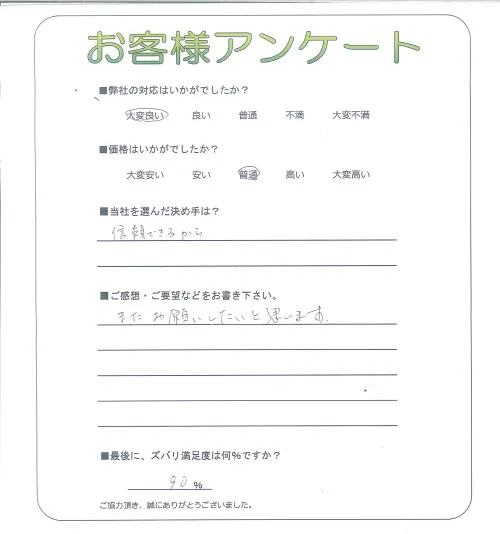 お客様アンケート
■弊社の対応はいかがでしたか？
大変良い 良い 普通 不満 大変不満
■価格はいかがでしたか？
大変安い 安い 普通 高い 大変高い
■当社を選んだ決め手は？
信頼できるから
■ご感想・ご要望などをお書き下さい。
またお願いしたいと思います。
■最後に、ズバリ満足度は何%ですか？
90 %
ご協力頂き、誠にありがとうございました。